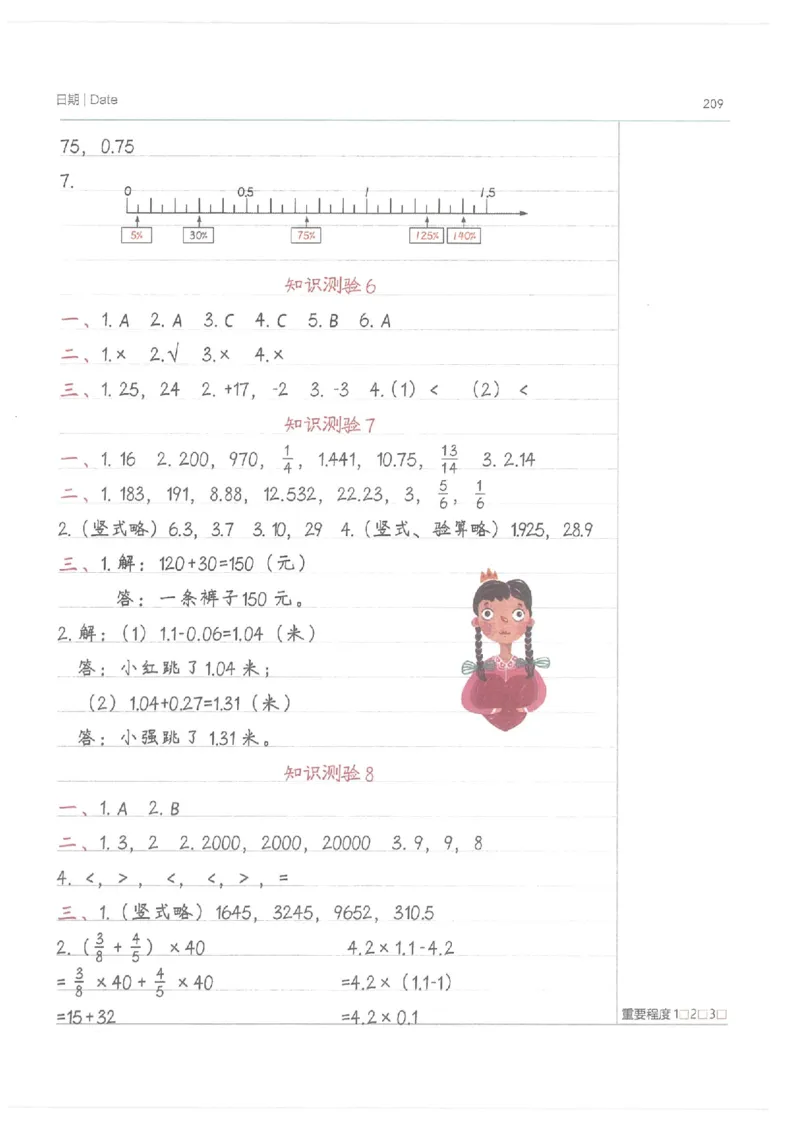 日期 | Date 209
75, 0.75
7.
0 0.5 1 1.5
5% 30% 75% 125% 140%
知识测验6
一、1. A 2. A 3. C 4. C 5. B 6. A
二、1. × 2. √ 3. × 4. ×
三、1. 25, 24 2. +17, -2 3. -3 4. (1) < (2) <
知识测验7
一、1. 16 2. 200, 970, 1/4, 1.441, 10.75, 13/14 3. 2.14
二、1. 183, 191, 8.88, 12.532, 22.23, 3, 5/6, 1/6
2. (竖式略) 6.3, 3.7 3. 10, 29 4. (竖式、验算略) 1.925, 28.9
三、1. 解: 120+30=150 (元)
答: 一条裤子150元。
2. 解: (1) 1.1-0.06=1.04 (米)
答: 小红跳了1.04米;
(2) 1.04+0.27=1.31 (米)
答: 小强跳了1.31米。
知识测验8
一、1. A 2. B
二、1. 3, 2 2. 2000, 2000, 20000 3. 9, 9, 8
4. <, >, <, <, >, =
三、1. (竖式略) 1645, 3245, 9652, 310.5
2. (3/8 + 4/5) ×40 4.2×1.1-4.2
= 3/8 ×40 + 4/5 ×40 =4.2× (1.1-1)
=15+32 =4.2×0.1
重要程度 1□2□3□